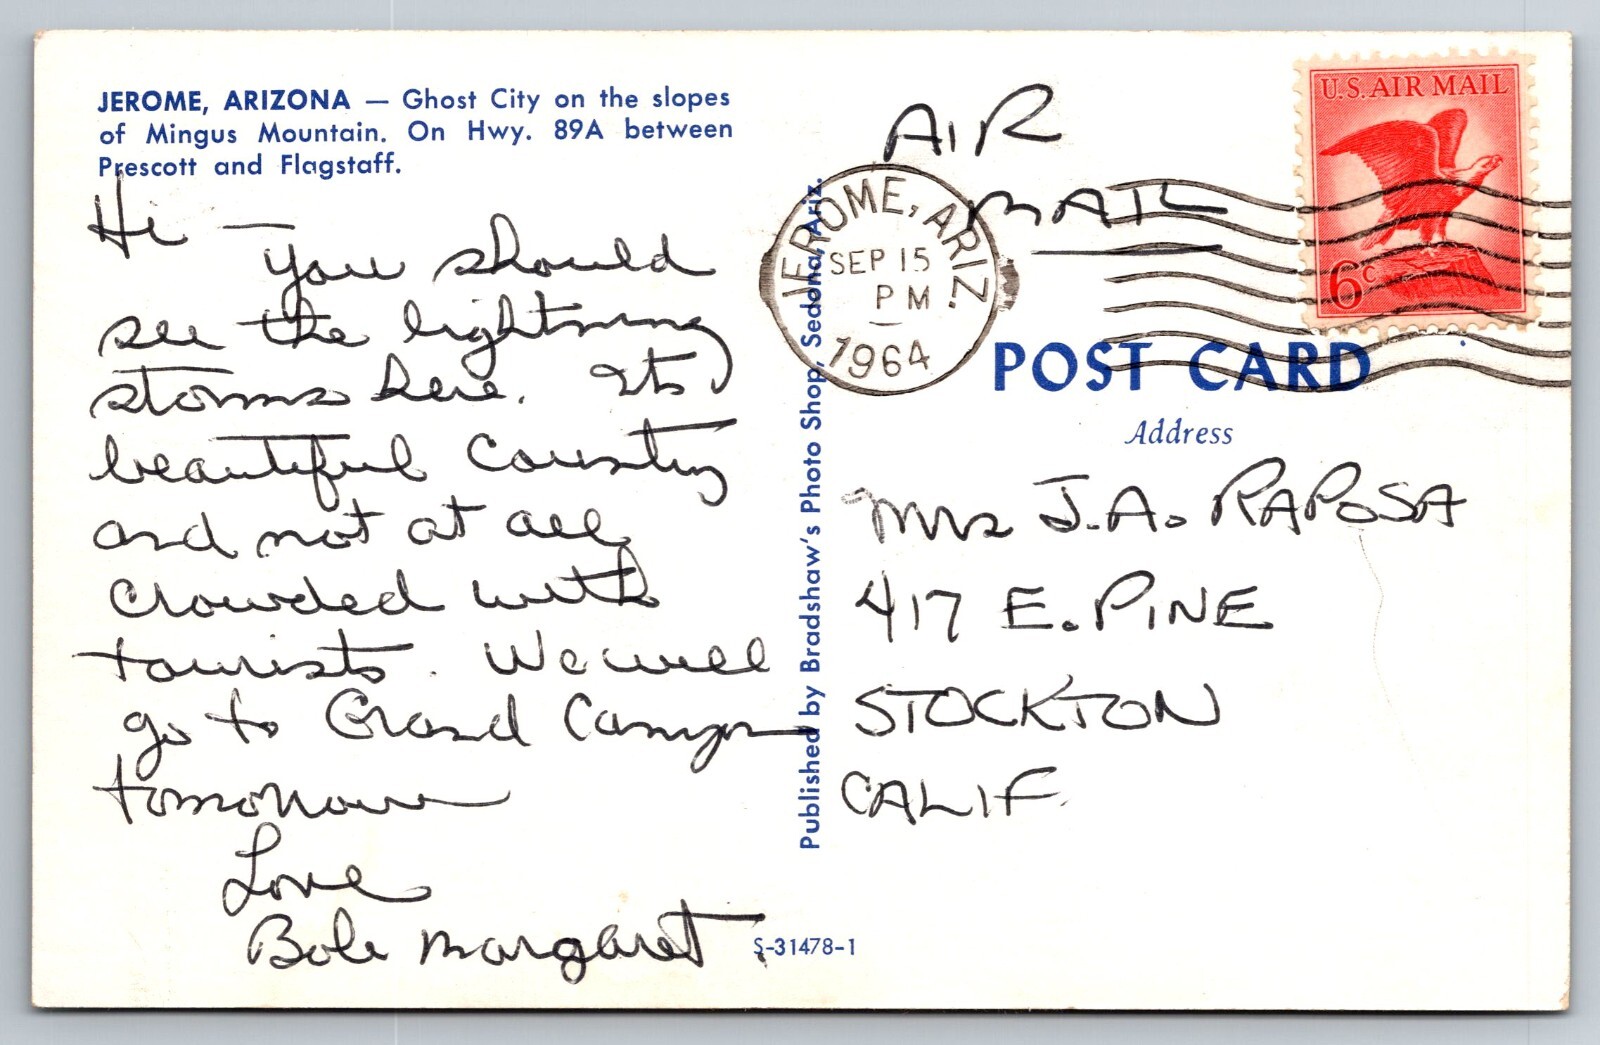 JEROME, ARIZONA — Ghost City on the slopes
of Mingus Mountain. On Hwy. 89A between
Prescott and Flagstaff.
Hi —
You should
see the lightning
storms here. Its
beautiful country
and not at all
crowded with
tourists. We will
go to Grand Canyon
tomorrow
Love
Bob Margaret
S-31478-1
Published by Bradshaw's Photo Shop, Sedona, Ariz.
AIR
MAIL
JEROME, ARIZ.
SEP 15
PM
1964
U.S. AIR MAIL
6c
POST CARD
Address
Mrs J.A. RAPOSA
417 E. PINE
STOCKTON
CALIF.